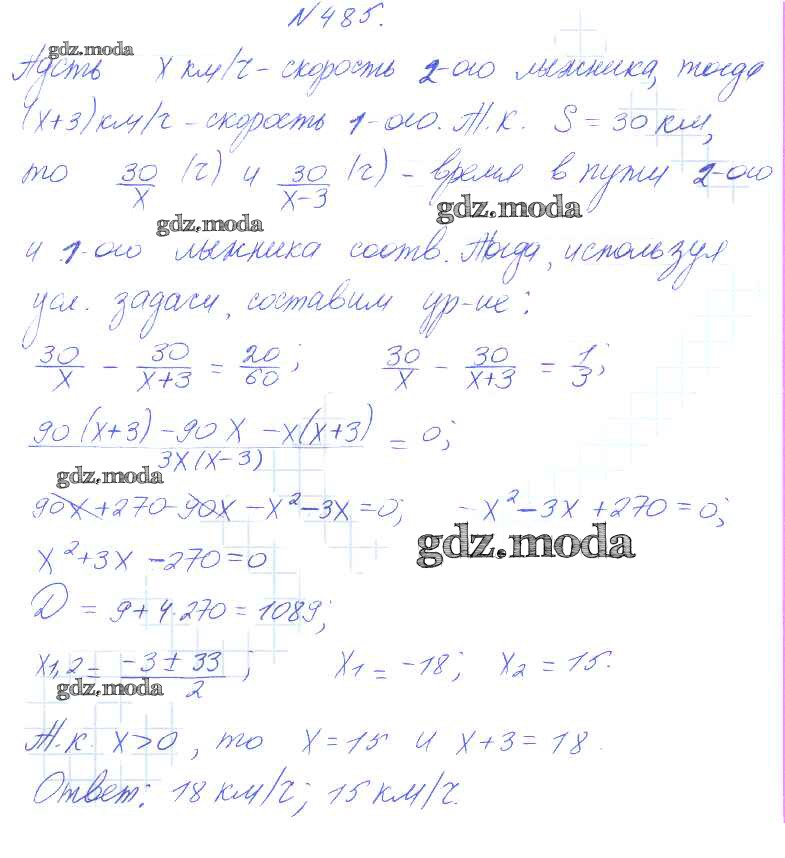 N 485.
gdz.moda
Пусть x км/ч - скорость 2-ого лыжника, тогда
(x+3) км/ч - скорость 1-ого. Т.к. S = 30 км,
то 30/x (ч) и 30/(x-3) (ч) - время в пути 2-ого
gdz.moda gdz.moda
и 1-ого лыжника соотв. Тогда, используя
усл. задачи, составим ур-ие:
30/x - 30/(x+3) = 20/60; 30/x - 30/(x+3) = 1/3;
(90(x+3) - 90x - x(x+3))/(3x(x-3)) = 0;
gdz.moda
90x + 270 - 90x - x² - 3x = 0; - x² - 3x + 270 = 0;
gdz.moda
x² + 3x - 270 = 0
D = 9 + 4·270 = 1089;
x1,2 = (-3 ± 33)/2; x1 = -18; x2 = 15.
gdz.moda
Т.к. x>0, то x = 15 и x+3 = 18.
Ответ: 18 км/ч; 15 км/ч.